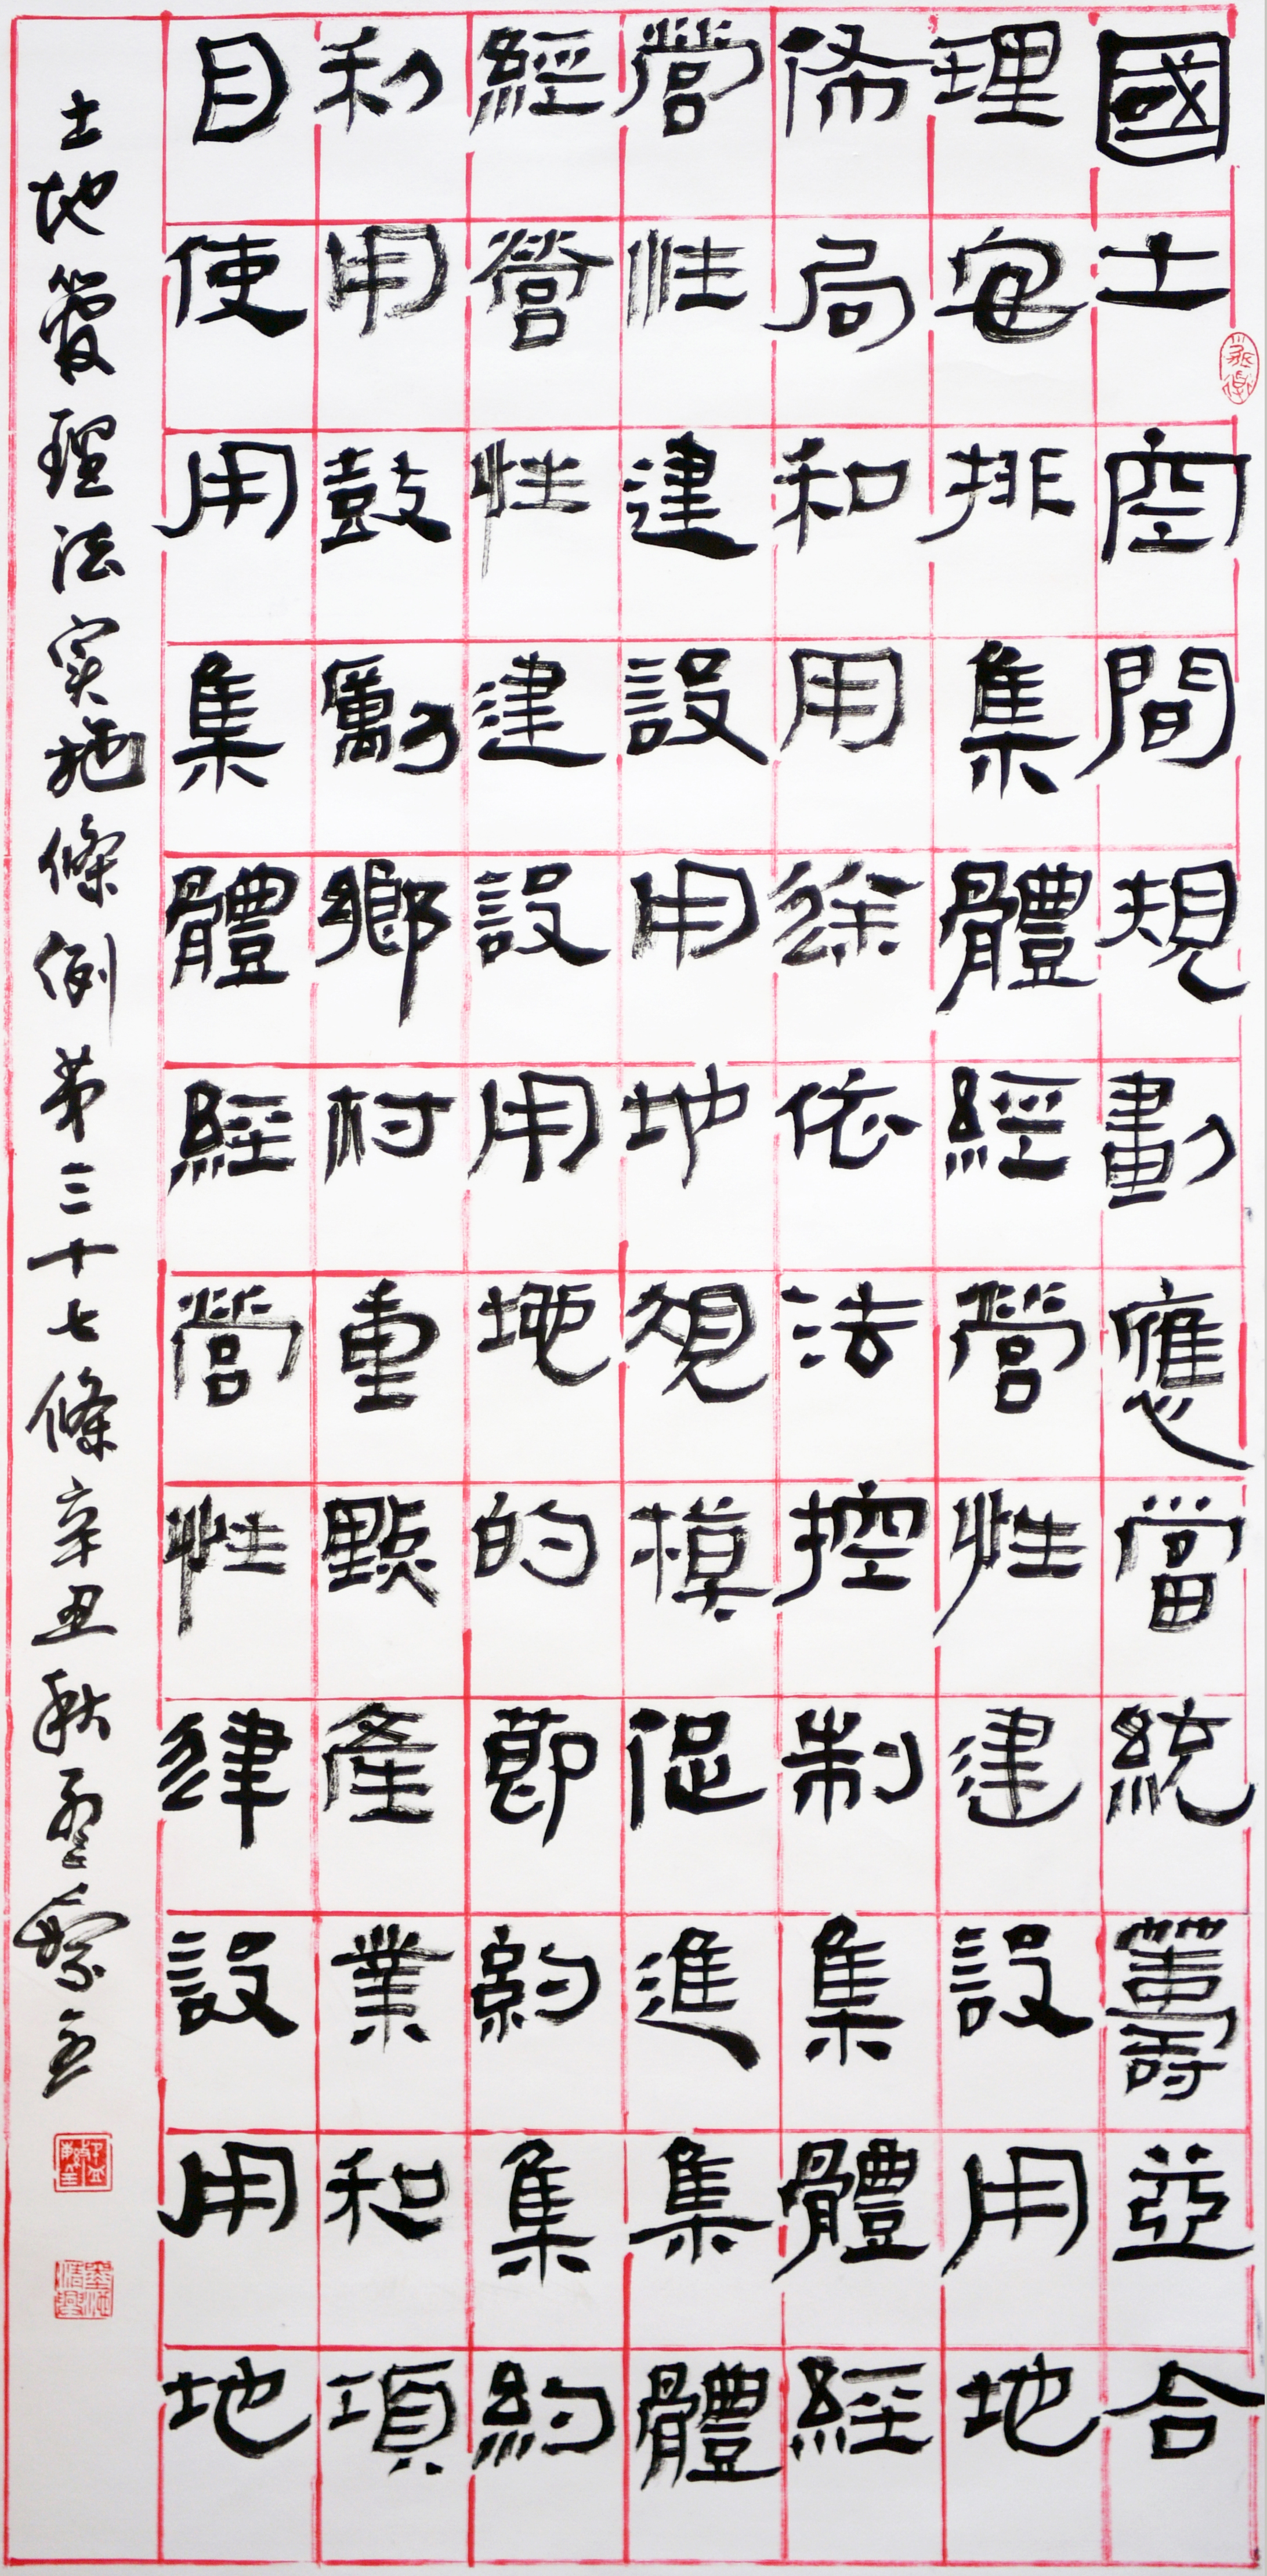 國土空間規劃應當統籌並合
理安排集體經營性建設用地
佈局和用途依法控制集體經
營性建設用地規模促進集體
經營性建設用地的節約集約
利用鼓勵鄉村重點產業和項
目使用集體經營性建設用地
土地管理法實施條例第三十七條辛丑秋